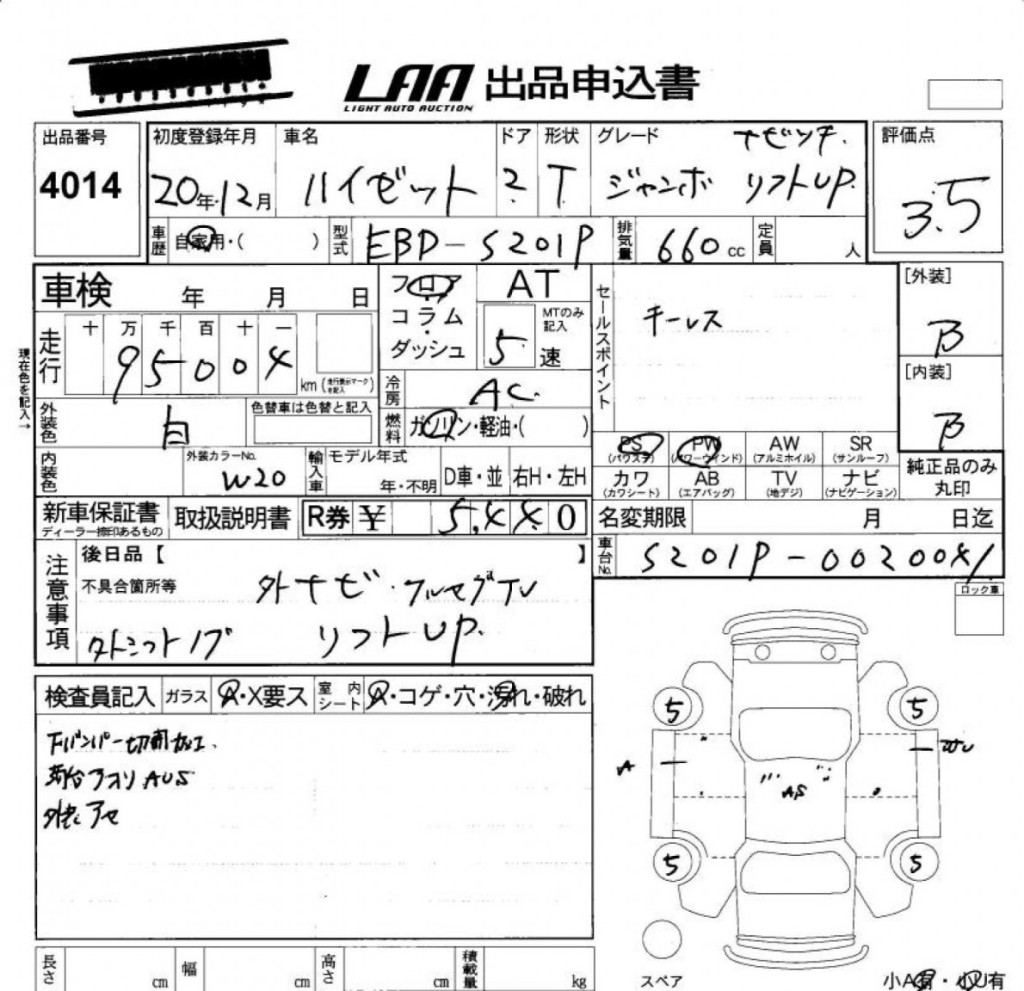 LAA 出品申込書
LIGHT AUTO AUCTION
出品番号
4014
初度登録年月
20年12月
車名
ハイゼット
ドア
2
形状
T
グレード
ナビツキ.
ジャンボ リフトUP.
評価点
3.5
車歴
自家用・( )
型式
EBD-S201P
排気量
660 cc
定員
人
車検 年 月 日
フロア
コラム
・
ダッシュ
AT
MTのみ記入
5 速
セールスポイント
キーレス
[外装]
B
[内装]
B
現在色を記入→
走行
十 万 千 百 十 一
9 5 0 0 4
km (走行表示マークを記入)
冷房
AC
外装色
白
色替車は色替と記入
燃料
ガソリン・軽油・( )
PS
(パワステ)
PW
(パワーウィンド)
AW
(アルミホイル)
SR
(サンルーフ)
カワ
(カワシート)
AB
(エアバッグ)
TV
(地デジ)
ナビ
(ナビゲーション)
純正品のみ
丸印
内装色
外装カラーNo.
W20
輸入車
モデル年式
年・不明
D車・並
右H・左H
新車保証書
ディーラー捺印あるもの
取扱説明書
R券 ¥ 5,440
名変期限 月 日迄
車台No.
S201P-0020041
ロック車
注意事項
後日品【 】
不具合箇所等
外ナビ・フルセグTV
リフトUP.
外シフトノブ
検査員記入
ガラス
A・X要ス
室内
シート
A・コゲ・穴・汚れ・破れ
下バンパー切削加工.
荷台アオリAUS
5
5
5
5
A
AS
スペア
長さ cm
幅 cm
高さ cm
積載量 kg
小A有・小U有